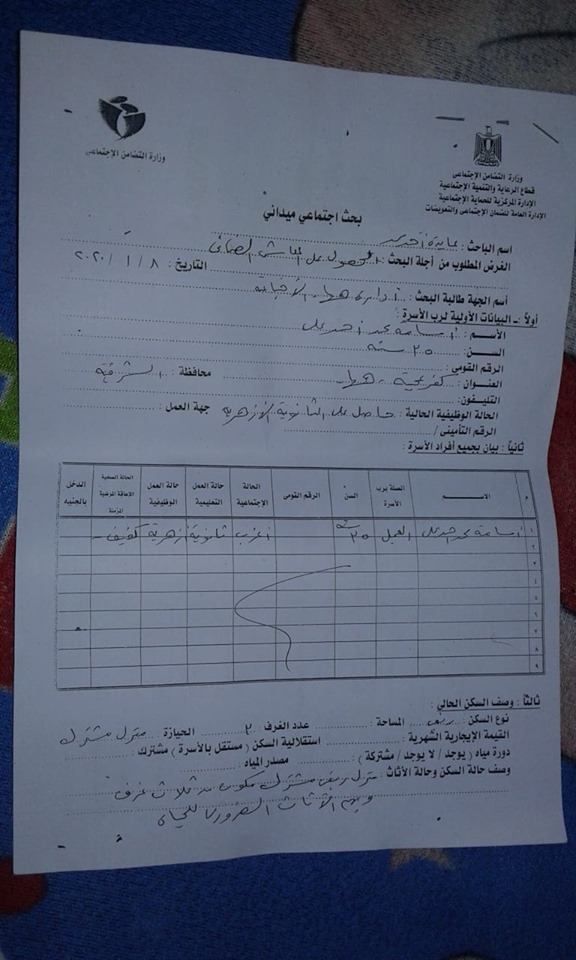 وزارة التضامن الإجتماعى
وزارة التضامن الإجتماعى
قطاع الرعاية والتنمية الإجتماعية
الإدارة المركزية للحماية الإجتماعية
الإدارة العامة للضمان الإجتماعى والتعويضات
بحث اجتماعي ميداني
اسم الباحث : عايدة أحمد
الغرض المطلوب من أجلة البحث : الحصول على المعاش الضمانى
التاريخ : ٨ / ١ / ٢٠٢٠
أسم الجهة طالبة البحث :
أولاً :ـ البيانات الأولية لرب الأسرة :
الأسم : أسامة محمد أحمد على
السن : ٢٥ سنة
الرقم القومى :
العنوان : محافظة : الشرقية
التليفون :
الحالة الوظيفية الحالية : حاصل على الثانوية الأزهرية جهة العمل :
الرقم التأمينى /
ثانياً : بيان بجميع أفراد الأسرة :
م الاســـم الصلة برب الأسرة السن الرقم القومى الحالة الإجتماعية حالة العمل التعليمية حالة العمل الوظيفية الحالة الصحية الاعاقة المرضية المزمنة الدخل بالجنيه
١ أسامة محمد أحمد على ٢٥ سنة أعزب ثانوية أزهرية كفيف -
٢
٣
٤
٥
٦
٧
٨
٩
ثالثاً : وصف السكن الحالي :
نوع السكن : ريفى المساحة : عدد الغرف : ٣ الحيازة : منزل مشترك
القيمة الإيجارية الشهرية : استقلالية السكن ( مستقل بالأسرة ) مشترك :
دورة مياه ( يوجد / لا يوجد / مشتركة ) : مصدر المياه :
وصف حالة السكن وحالة الأثاث : منزل ريفى مشترك مكون من ثلاث غرف
وبهم الأثاث الضرورى للحياة